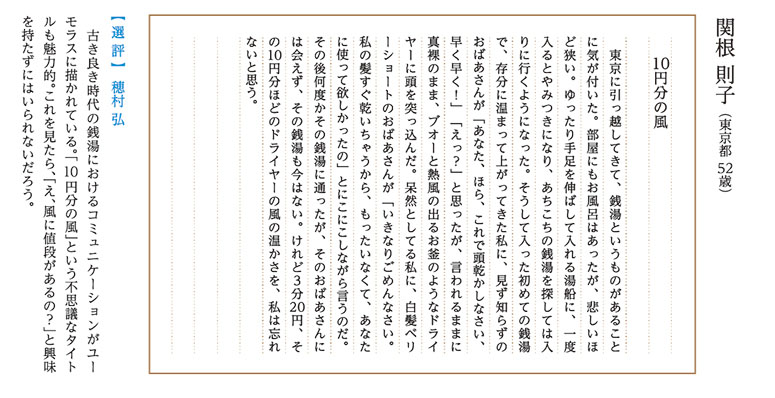 関根 則子（東京都 52歳）
10円分の風
東京に引っ越してきて、銭湯というものがあること
に気が付いた。部屋にもお風呂はあったが、悲しいほ
ど狭い。ゆったり手足を伸ばして入れる湯船に、一度
入るとやみつきになり、あちこちの銭湯を探しては入
りに行くようになった。そうして入った初めての銭湯
で、存分に温まって上がってきた私に、見ず知らずの
おばあさんが「あなた、ほら、これで頭乾かしなさい、
早く早く！」「えっ？」と思ったが、言われるままに
真裸のまま、ブオーと熱風の出るお釜のようなドライ
ヤーに頭を突っ込んだ。呆然としてる私に、白髪ベリ
ーショートのおばあさんが「いきなりごめんなさい。
私の髪すぐ乾いちゃうから、もったいなくて、あなた
に使って欲しかったの」とにこにこしながら言うのだ。
その後何度かその銭湯に通ったが、そのおばあさんに
は会えず、その銭湯も今はない。けれど３分20円、そ
の10円分ほどのドライヤーの風の温かさを、私は忘れ
ないと思う。
【選評】穂村 弘
古き良き時代の銭湯におけるコミュニケーションがユー
モラスに描かれている。「10円分の風」という不思議なタイト
ルも魅力的。これを見たら、「え、風に値段があるの？」と興味
を持たずにはいられないだろう。